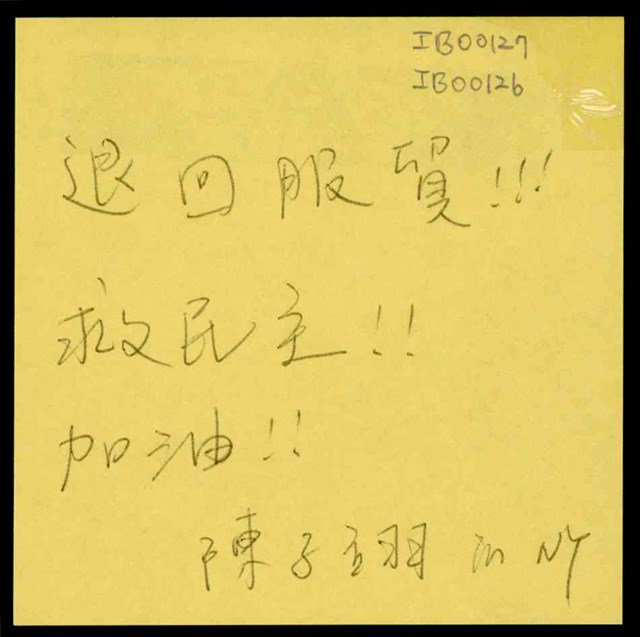 IB00127
IB00126
退回服貿!!!
救民主!!
加油!!
陳子翊 於 NY